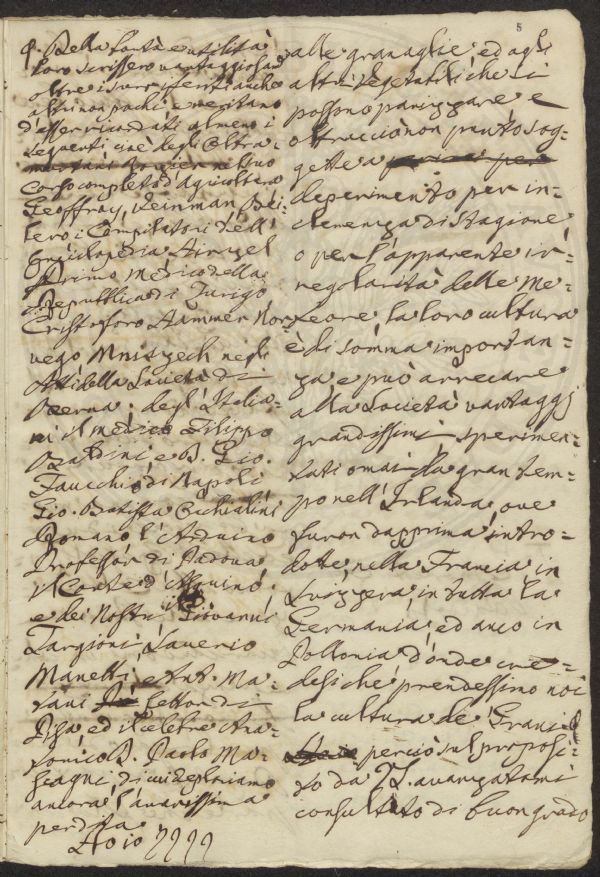 5
φ. Della bontà e utilità
loro scrissero vantaggiosam
oltre i surriferiti anche
altri non pochi e meritano
d'esser ricordati almeno i
seguenti cioè degli Oltra-
montani Rozier nel suo
Corso completo d'Agricoltura
Geoffroy, Reinman,
i Compilatori dell'
Enciclopedia
Primo Medico della
Repubblica di Zurigo
Cristoforo Hammer Nor
vego Mnitzech negli
Atti della Società di
Berna. degl'Italia-
ni il medico Filippo
Baldini e D. Gio.
di Napoli
Gio. Batista Occhialini
Romano l'Arduino
Professor di Padova
il Conte d'
e dei Nostri Giovanni
Targioni Saverio
Manetti, e Ant. Ma-
tani Lettor di
Pisa ed il celebre Ana-
tomico D. Paolo Ma-
scagni di cui
ancora l'amarissima
perdita
alle granaglie ed agli
altri vegetabili che si
possono panizzare e
non punto sog-
gette a
deperimento per in-
clemenza di stagione
o per l'apparente ir-
regolarità delle Me-
teore la loro cultura
è di somma importan-
za e può arrecare
alla Società vantaggj
grandissimi sperimen-
tati omai da gran tem-
po nell'Irlanda, ove
furon dapprima intro-
dote, nella Francia in
Svizzera in tutta la
Germania, ed anco in
Pollonia donde cre-
desi che prendessimo noi
la cultura de' Grani
perciò sul proposi-
to da VS. avanzatomi
consultato di buon grado